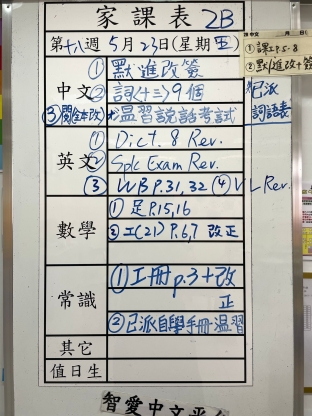 家課表 2B
第十八週 5月23日(星期五)
①課工P.5-8
②默進改+簽
中文
①默進改簽
②詞(十三)9個
③閱全本改
*温習說話考試
*已派
詞語表
英文
①Dict. 8 Rev.
②Spk Exam Rev.
③WB P.31,32 ④VL Rev.
數學
①足P.15,16
②工(21)P.6,7 改正
常識
①工冊p.3+改
正
②已派自學手冊-温習
其它
值日生
智愛中文平台